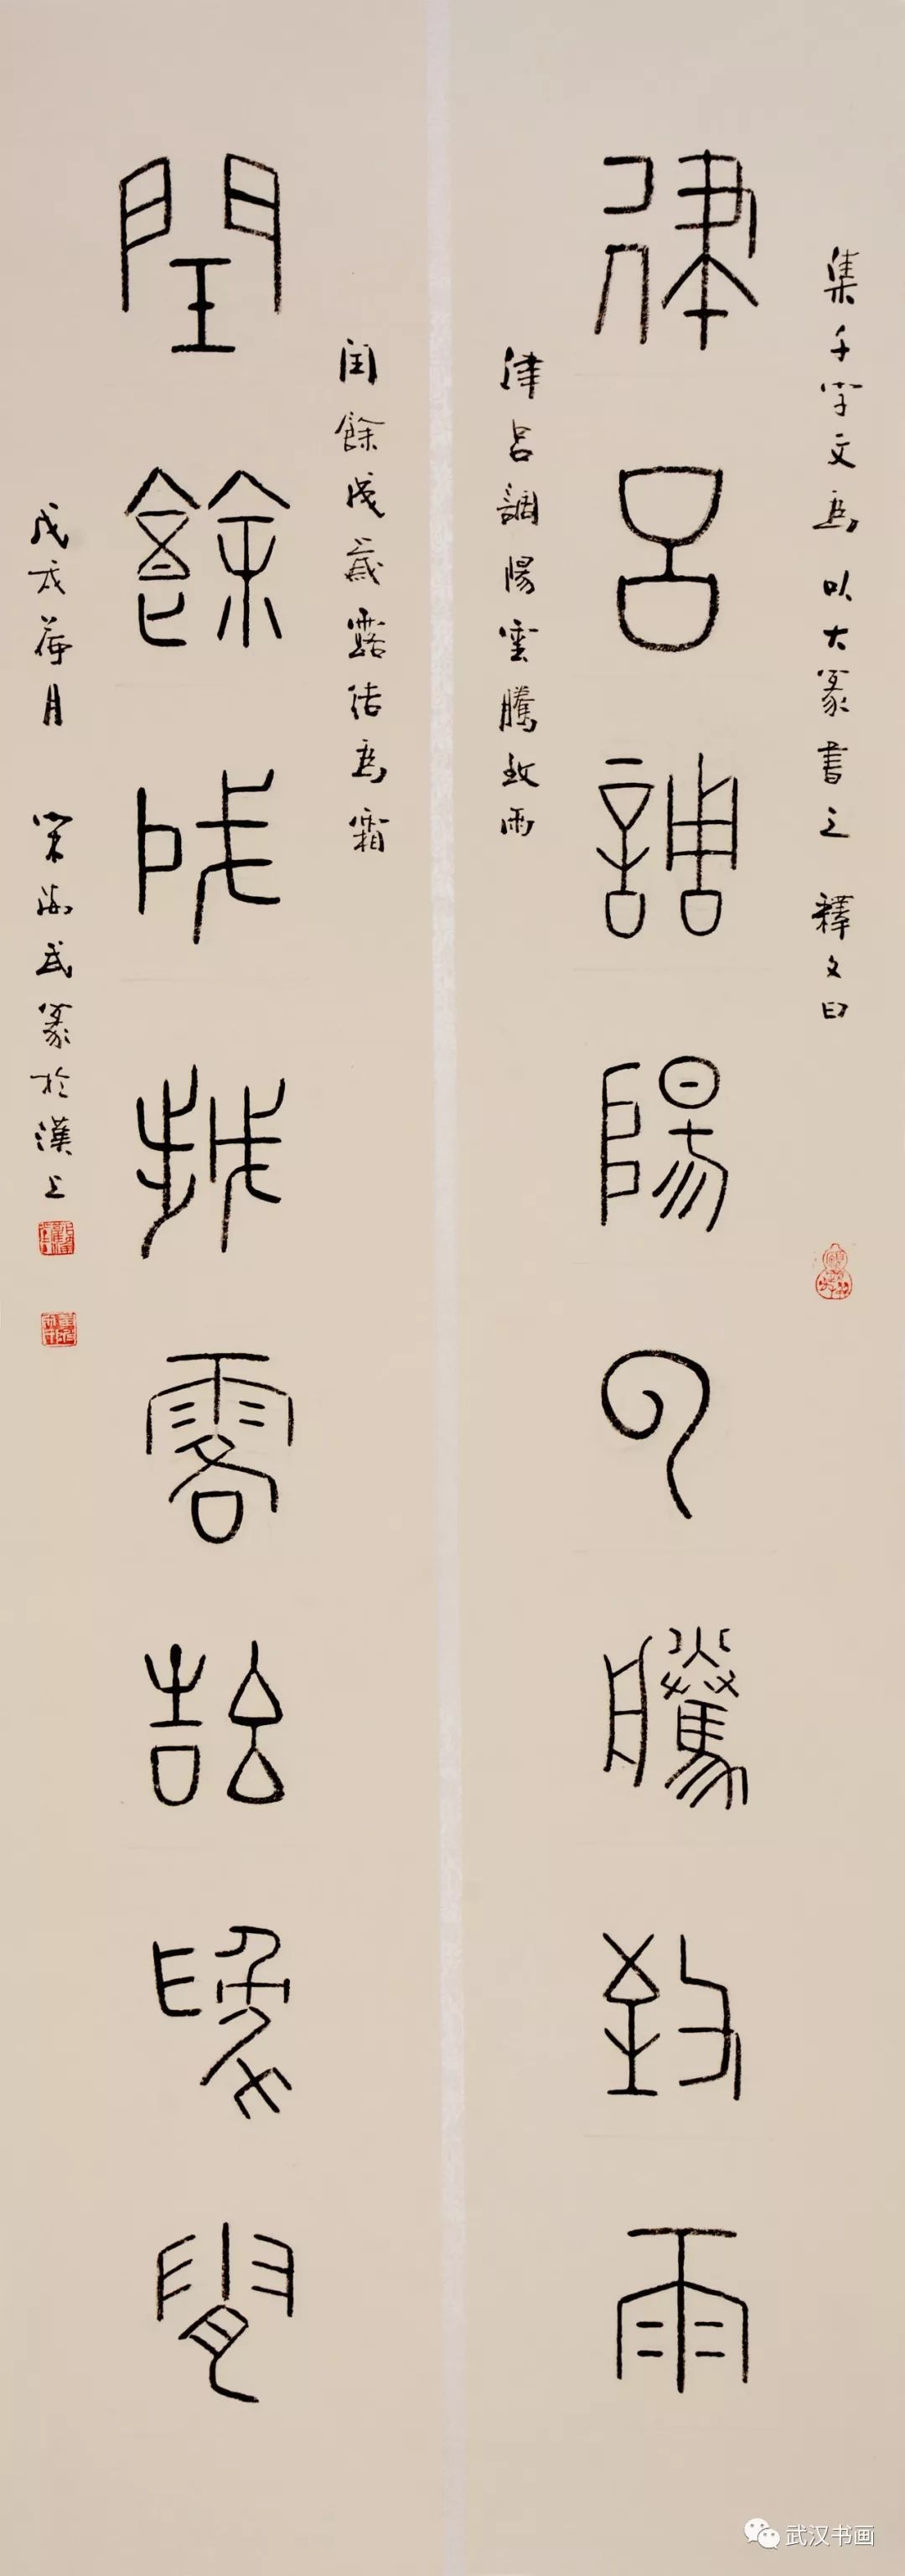 集千字文句以大篆書之 釋文曰
律呂調陽雲騰致雨
律呂調陽雲騰致雨
閏餘成歲露結為霜
閏餘成歲露結為霜
戊戌荷月 武篆於漢上
武汉书画